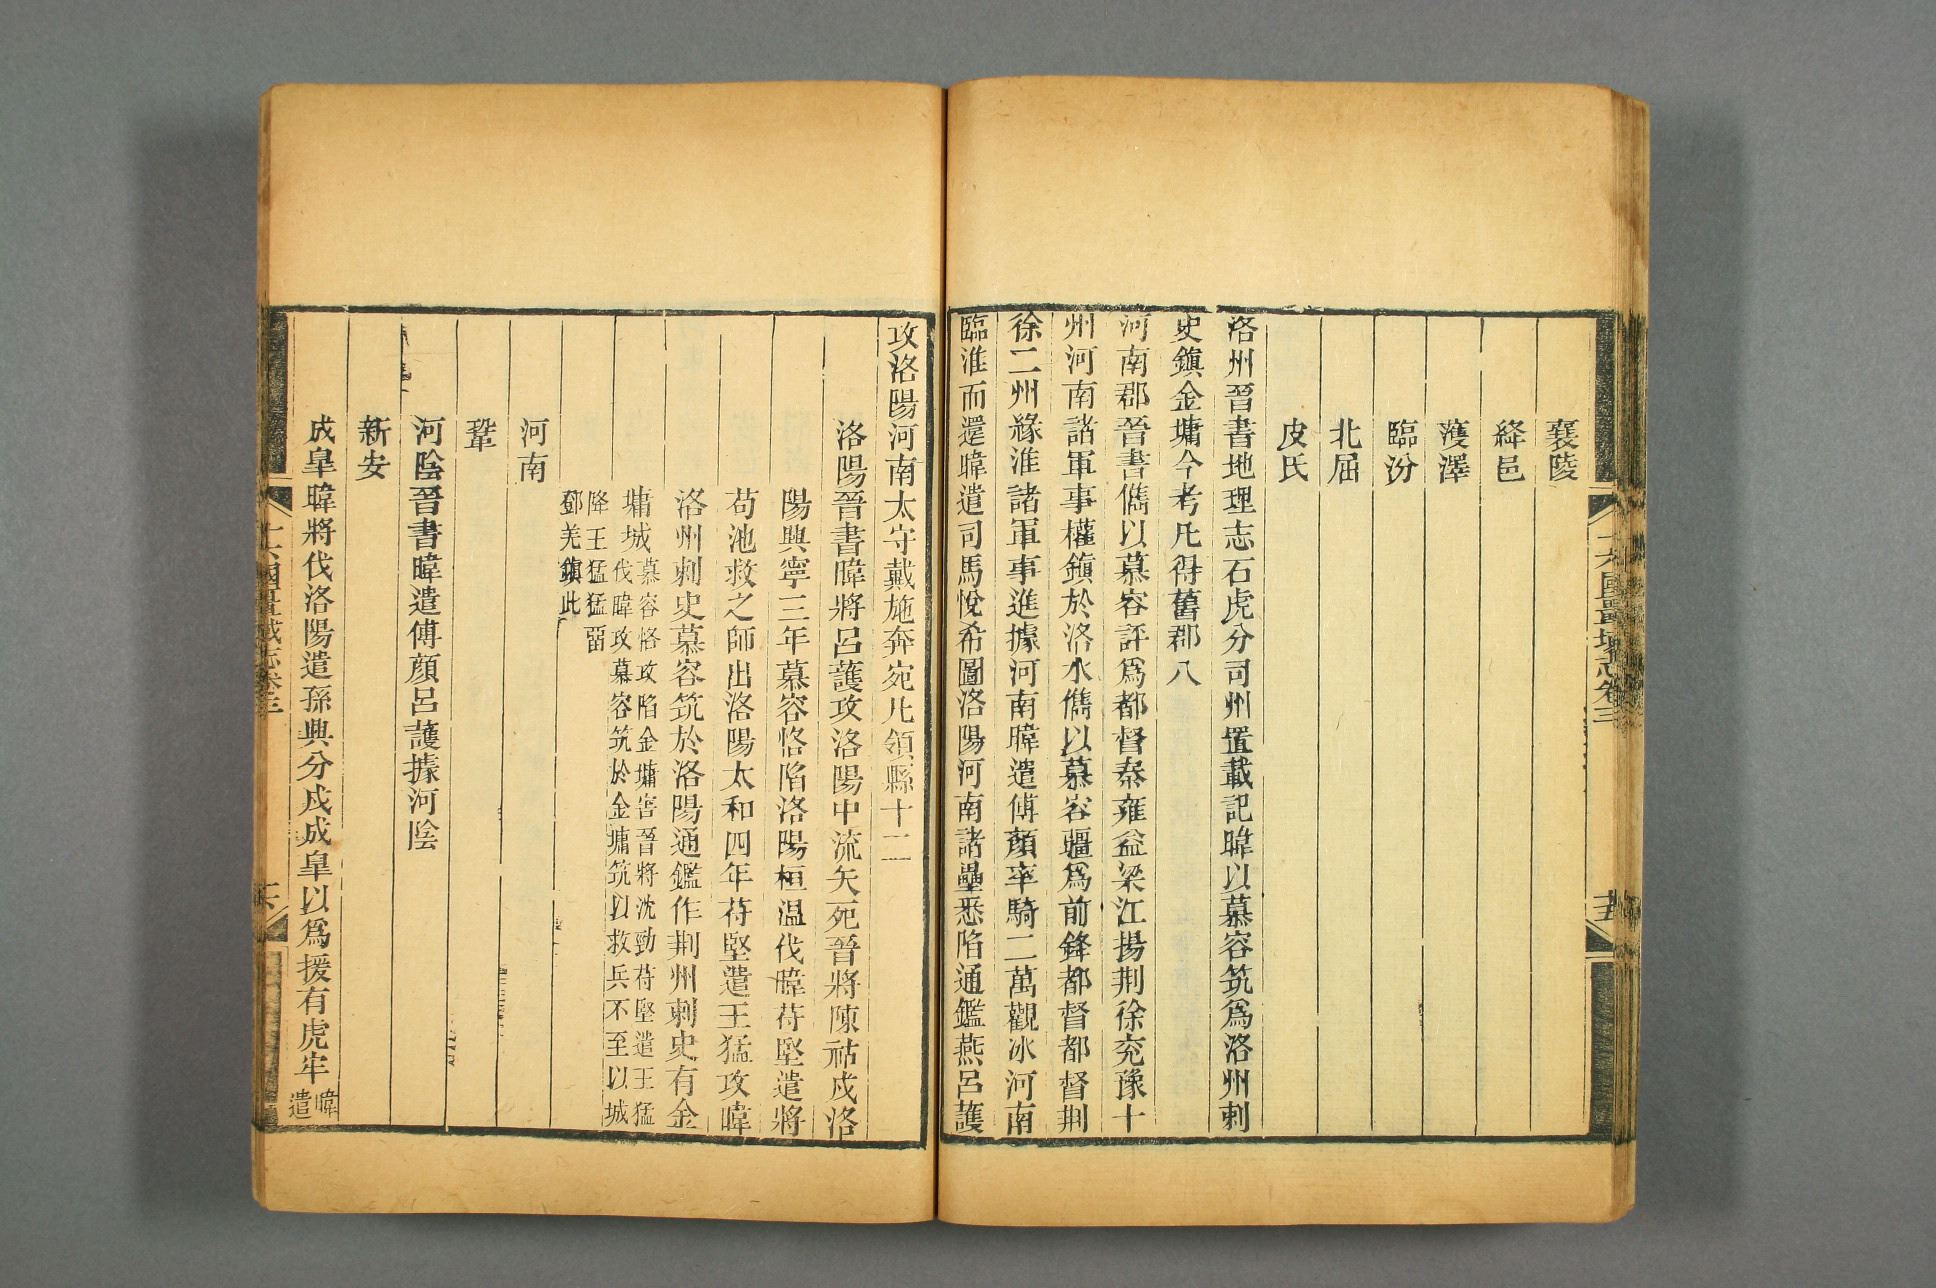 襄陵
絳邑
濩澤
臨汾
北屈
皮氏
洛州晉書地理志石虎分司州置載記暐以慕容筑爲洛州刺
史鎭金墉今考凡得舊郡八
河南郡晉書儁以慕容評爲都督秦雍益梁江揚荆徐兗豫十
州河南諸軍事權鎭於洛水儁以慕容彊爲前鋒都督都督荆
徐二州緣淮諸軍事進據河南暐遣傅顏率騎二萬觀冰河南
臨淮而還暐遣司馬悅希圖洛陽河南諸壘悉陷通鑑燕呂護
十六國疆域志卷三
十五
攻洛陽河南太守戴施奔宛凡領縣十二
洛陽晉書暐將呂護攻洛陽中流矢死晉將陳祜戍洛
陽興寧三年慕容恪陷洛陽桓温伐暐苻堅遣將
苟池救之師出洛陽太和四年苻堅遣王猛攻暐
洛州刺史慕容筑於洛陽通鑑作荆州刺史有金
墉城慕容恪攻陷金墉害晉將沈勁苻堅遣王猛
伐暐攻慕容筑於金墉筑以救兵不至以城
降王猛猛畱
鄧羌鎭此
河南
鞏
河陰晉書暐遣傅顏呂護據河陰
新安
成皐暐將伐洛陽遣孫興分戍成皐以爲援有虎牢暐
遣
十六國疆域志卷三